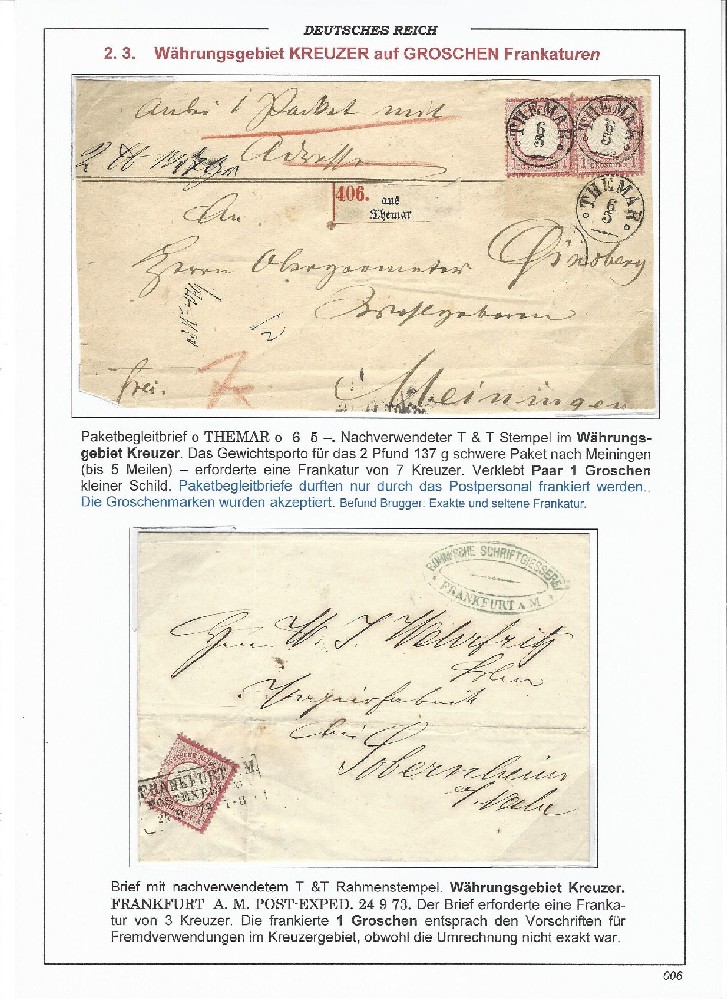 DEUTSCHES REICH
2. 3. Währungsgebiet KREUZER auf GROSCHEN Frankaturen
Anbei 1 Packet mit
Adresse
THEMAR
6
3
THEMAR
6
3
THEMAR
6
3
406. aus
Themar
An
Herrn Obergeometer
Wohlgeboren
frei.
7
Meiningen
Paketbegleitbrief o THEMAR o 6 5 –. Nachverwendeter T & T Stempel im Währungs-
gebiet Kreuzer. Das Gewichtsporto für das 2 Pfund 137 g schwere Paket nach Meiningen
(bis 5 Meilen) – erforderte eine Frankatur von 7 Kreuzer. Verklebt Paar 1 Groschen
kleiner Schild. Paketbegleitbriefe durften nur durch das Postpersonal frankiert werden..
Die Groschenmarken wurden akzeptiert. Befund Brugger: Exakte und seltene Frankatur.
SCHRIFTGIESSEREI
FRANKFURT A M
Herrn W. J. Wehrfritz
Sohn
Papierfabrik
bei
Sobernheim
a/Nahe
FRANKFURT A. M.
POST-EXPED.
Brief mit nachverwendetem T &T Rahmenstempel. Währungsgebiet Kreuzer.
FRANKFURT A. M. POST-EXPED. 24 9 73. Der Brief erforderte eine Franka-
tur von 3 Kreuzer. Die frankierte 1 Groschen entsprach den Vorschriften für
Fremdverwendungen im Kreuzergebiet, obwohl die Umrechnung nicht exakt war.
006